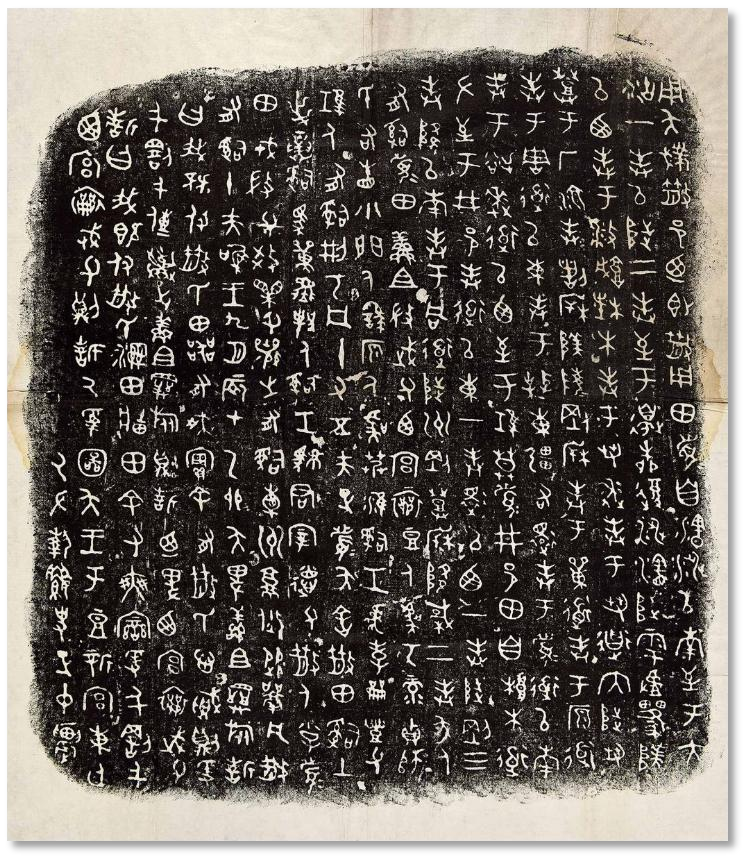 用夨𢍰散邑乃即散用田眉自瀗涉以南至于大
沽一封以陟二封至于邊柳復涉瀗陟雩
以西封于播城楮木封于芻逨封于芻道內陟芻
登于厂湶封陵陵剛封于單道封于原道
封于周道以東封于東疆右還封于眉道以南
封于逨道以西至于莫眉井邑田自根木道
左至于井邑封道以東一封還以西一封陟剛三
封降以南封于同道陟州剛登降棫二封夨人
有司眉田鮮且微武父西宮襄豆人虞丂彔貞師
氏右眚小門人繇原人虞艿淮司工虎孝豐父
人有司丂凡十又五夫正眉夨舍散田司土
逆寅司馬單人司工君宰德父散人小子
眉田戎微父效父襄之有司橐州焂從凡散
有司十夫唯王九月辰在乙卯夨卑鮮且旅誓
曰我既付散氏田器有爽實余有散氏心賊則爰
千罰千傳棄之鮮且旅則誓乃卑西宮襄武父
誓曰我既付散氏濕田牆田余有爽變爰千罰千
西宮襄武父則誓厥受圖夨王于豆新宮東廷
厥左執縷史正中農